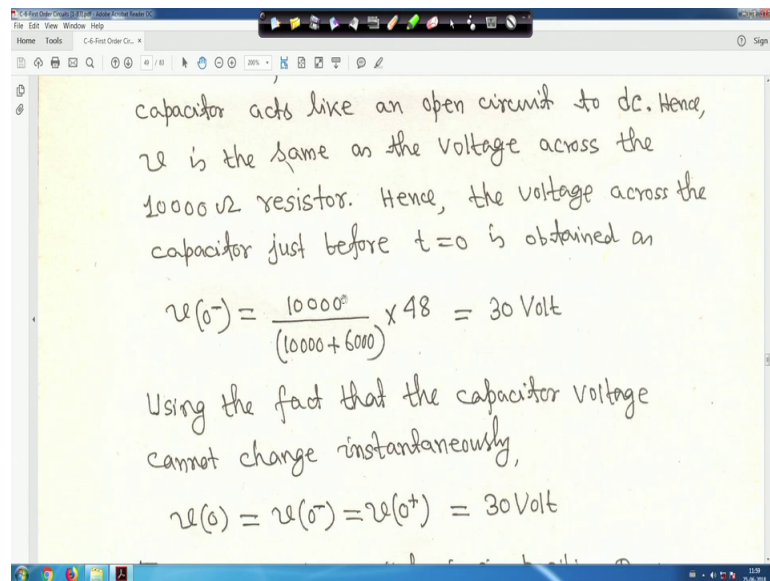 C-6-First Order Circuits [1-83].pdf - Adobe Acrobat Reader DC
File Edit View Window Help
Home Tools C-6-First Order Cir... × Sign
49 / 83 200%
capacitor acts like an open circuit to dc. Hence,
v is the same as the voltage across the
10000 Ω resistor. Hence, the voltage across the
capacitor just before t=0 is obtained as
v(0⁻) = 10000 / (10000 + 6000) × 48 = 30 Volt
Using the fact that the capacitor voltage
cannot change instantaneously,
v(0) = v(0⁻) = v(0⁺) = 30 Volt
11:59